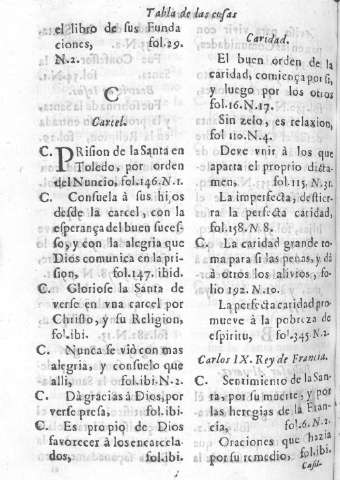 Tabla de las cosas
el libro de sus Funda
ciones, fol.29.
N.2.
C
Carcel.
C. PRision de la Santa en
Toledo, por orden
del Nuncio, fol.146.N.1.
C. Consuela à sus hijos
desde la carcel, con la
esperança del buen suces-
so, y con la alegria que
Dios comunica en la pri-
sion, fol.147. ibid.
C. Gloriose la Santa de
verse en vna carcel por
Christo, y su Religion,
fol.ibi.
C. Nunca se viò con mas
alegria, y consuelo que
alli, fol.ibi.N.2.
C. Dà gracias à Dios, por
verse presa, fol.ibi.
C. Es propio de Dios
favorecer à los encarcela-
dos, fol.ibi.
Caridad.
El buen orden de la
caridad, comiença por si,
y luego por los otros
fol.16.N.17.
Sin zelo, es relaxion,
fol 110.N.4.
Deve vnir à los que
aparta el proprio dicta-
men, fol.115.N.31.
La imperfecta, destier-
ra la perfecta caridad,
fol.158.N.8.
C. La caridad grande to-
ma para si las penas, y dà
à otros los alivios, fo-
lio 192.N.10.
La perfecta caridad pro-
mueve à la pobreza de
espiritu, fol.345.N.2.
Carlos IX. Rey de Francia.
C. Sentimiento de la San-
ta, por su muerte, y por
las heregias de la Fran-
cia, fol.6.N.2.
Oraciones que hazia
por su remedio, fol.ibi.